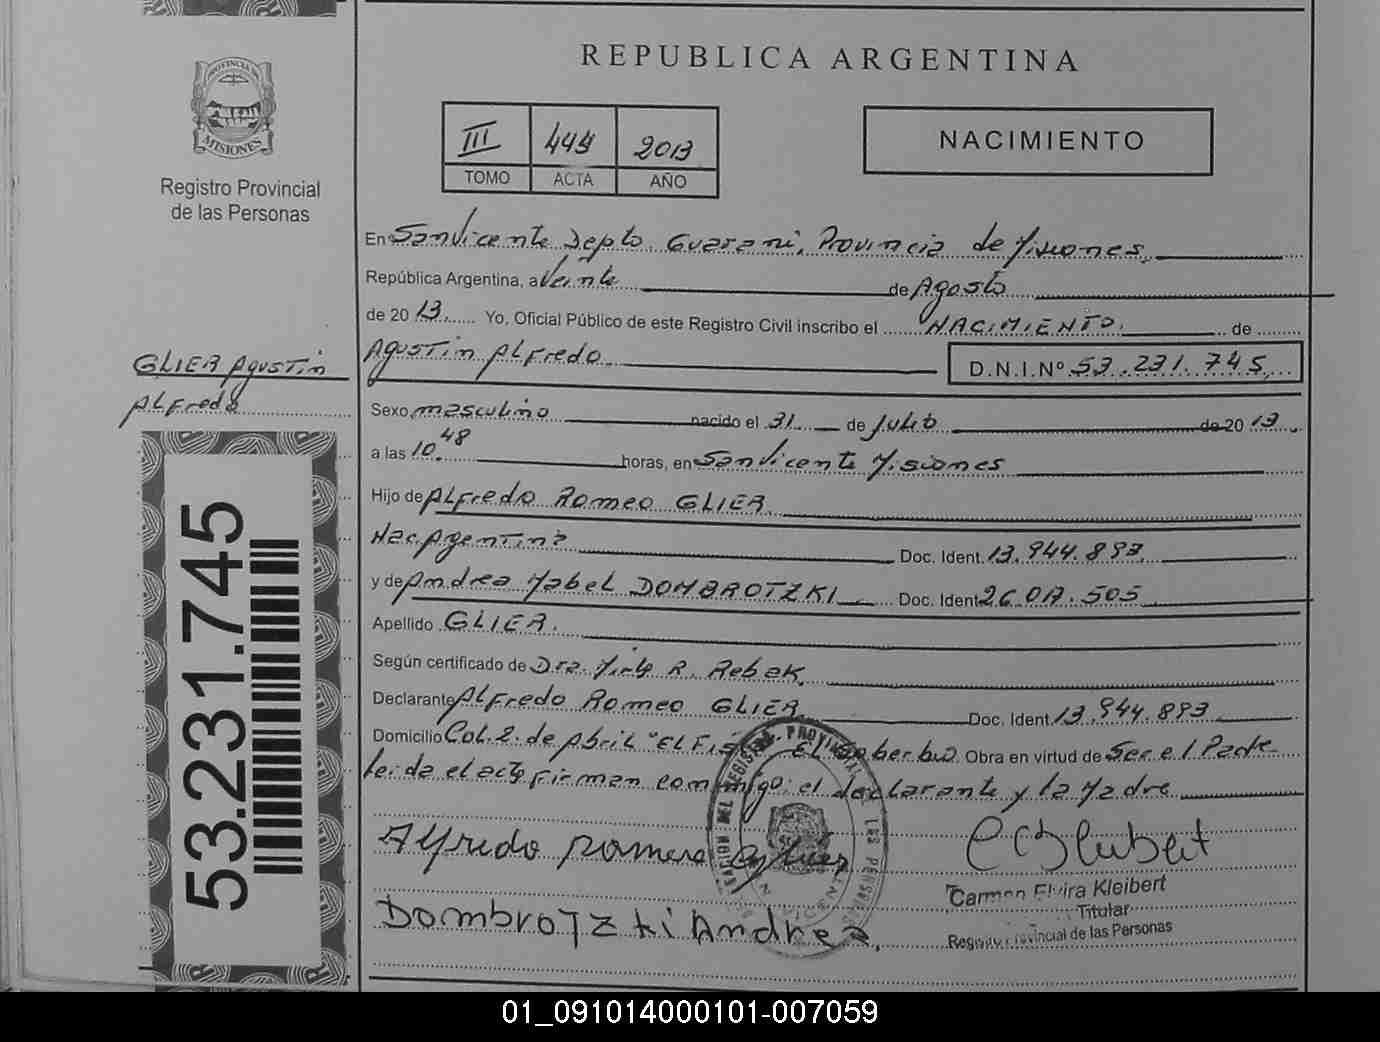 REPUBLICA ARGENTINA
PROVINCIA DE
MISIONES
Registro Provincial
de las Personas
III 444 2013
TOMO ACTA AÑO
NACIMIENTO
En San Vicente Depto. Guarani, Provincia de Misiones,
República Argentina, a Veinte de Agosto
de 2013. Yo, Oficial Público de este Registro Civil inscribo el NACIMIENTO. de
Agustin Alfredo D.N.I.Nº 53.231.745
GLIER Agustin
Alfredo
Sexo masculino nacido el 31 de Julio de 2013.
a las 10.48 horas, en San Vicente Misiones
Hijo de Alfredo Romeo GLIER
Nac. Argentina Doc. Ident. 13.944.893
y de Andrea Mabel DOMBROTZKI Doc. Ident 26.0 .505
Apellido GLIER.
Según certificado de Dra. R. Rebak.
Declarante Alfredo Romeo GLIER Doc. Ident. 13.944.893
Domicilio Col. 2. de Abril "El El Soberbio Obra en virtud de Ser el Padre
leida el acta firman conmigo: el declarante y la Madre
Alfredo Romeo Glier
Dombrotzki Andrea.
Carmen Elvira Kleibert
Titular
Registro Provincial de las Personas
53.231.745
01_091014000101-007059